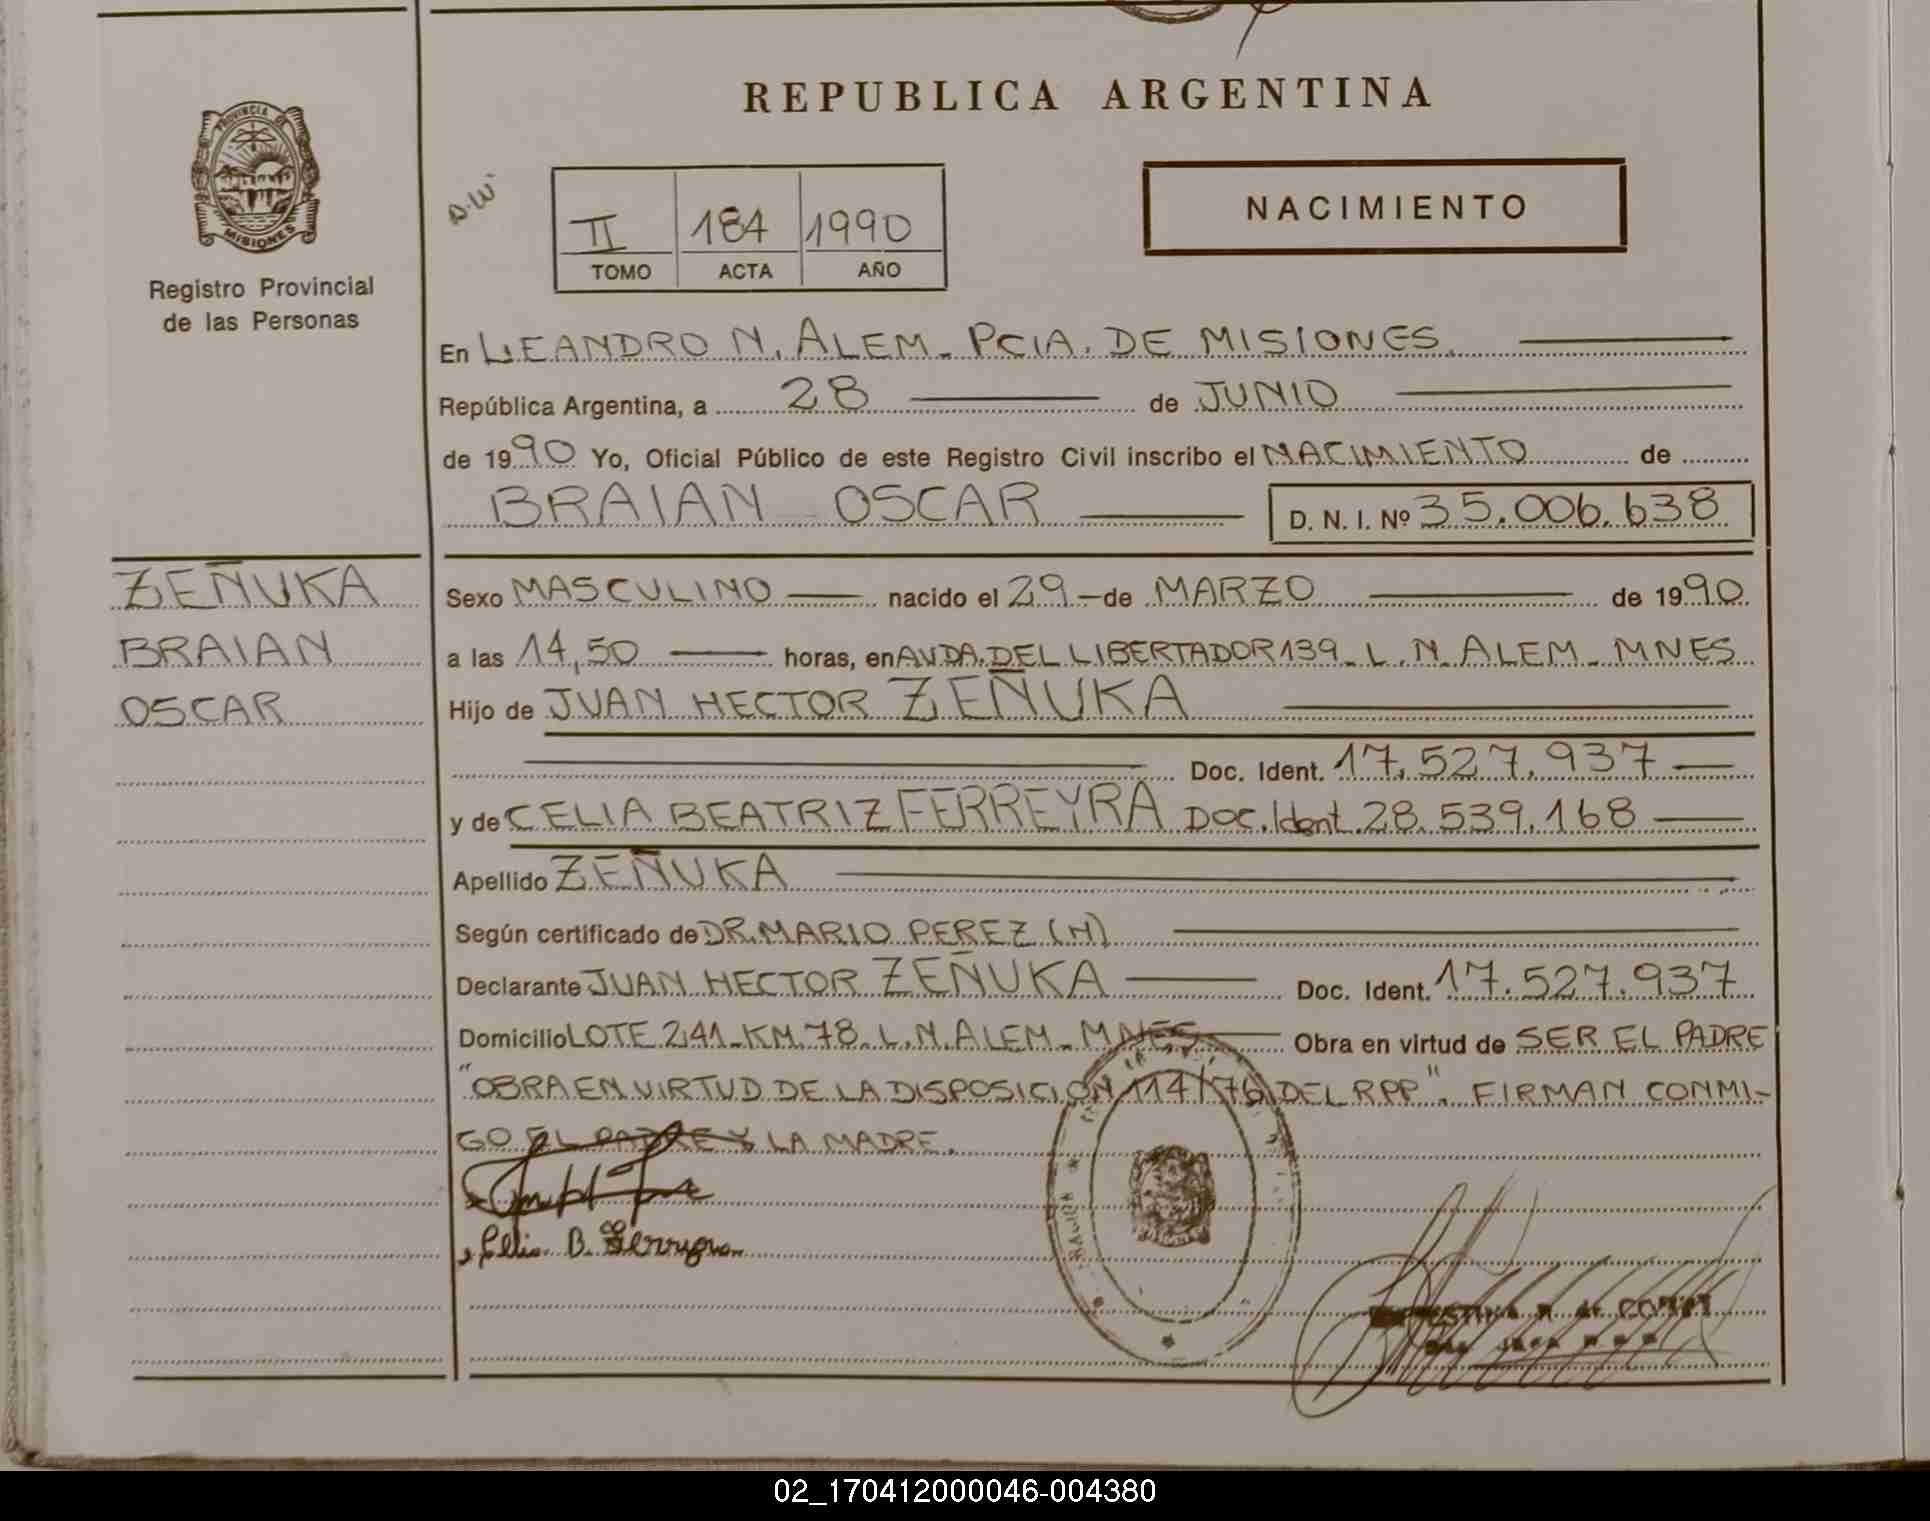 REPUBLICA ARGENTINA
PROVINCIA DE
MISIONES
Registro Provincial
de las Personas
II 184 1990
TOMO ACTA AÑO
NACIMIENTO
En LEANDRO N. ALEM - PCIA. DE MISIONES.
República Argentina, a 28 de JUNIO
de 1990 Yo, Oficial Público de este Registro Civil inscribo el NACIMIENTO de
BRAIAN OSCAR D. N. I. Nº 35.006.638
ZEÑUKA
BRAIAN
OSCAR
Sexo MASCULINO nacido el 29 - de MARZO de 1990
a las 14,50 horas, en AVDA. DEL LIBERTADOR 139 - L. N. ALEM - MNES
Hijo de JUAN HECTOR ZEÑUKA
Doc. Ident. 17.527.937
y de CELIA BEATRIZ FERREYRA Doc. Ident. 28.539.168
Apellido ZEÑUKA
Según certificado de DR. MARIO PEREZ (H)
Declarante JUAN HECTOR ZEÑUKA Doc. Ident. 17.527.937
Domicilio LOTE 241 - KM. 78 - L. N. ALEM - MNES Obra en virtud de SER EL PADRE
"OBRA EN VIRTUD DE LA DISPOSICION 114/76 DEL RPP". FIRMAN CONMI-
GO EL PADRE Y LA MADRE.
Celia B. Ferreyra
02_170412000046-004380